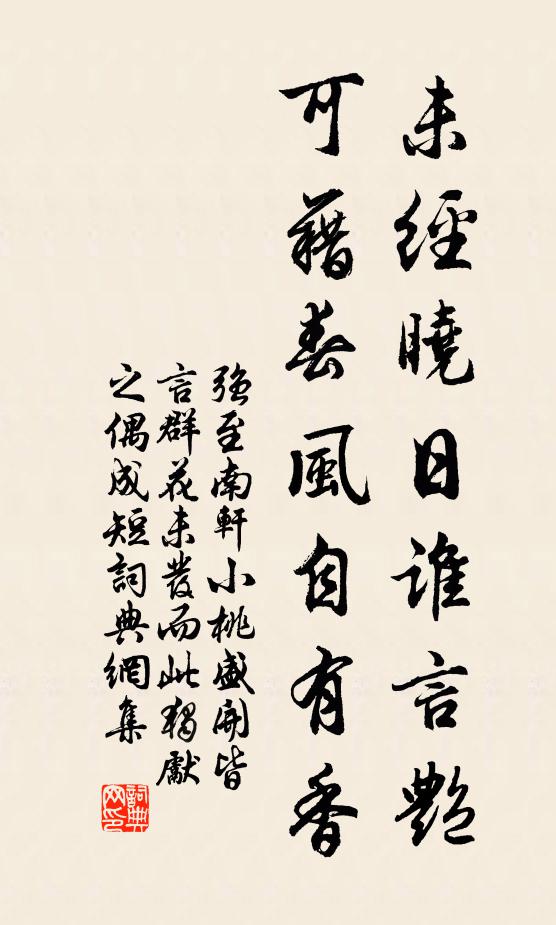 未經曉日誰言艷
可藉春風自有香
強至南軒小桃盛開皆
言群花未發而此獨獻
之偶成短詞典網集
詞典網印